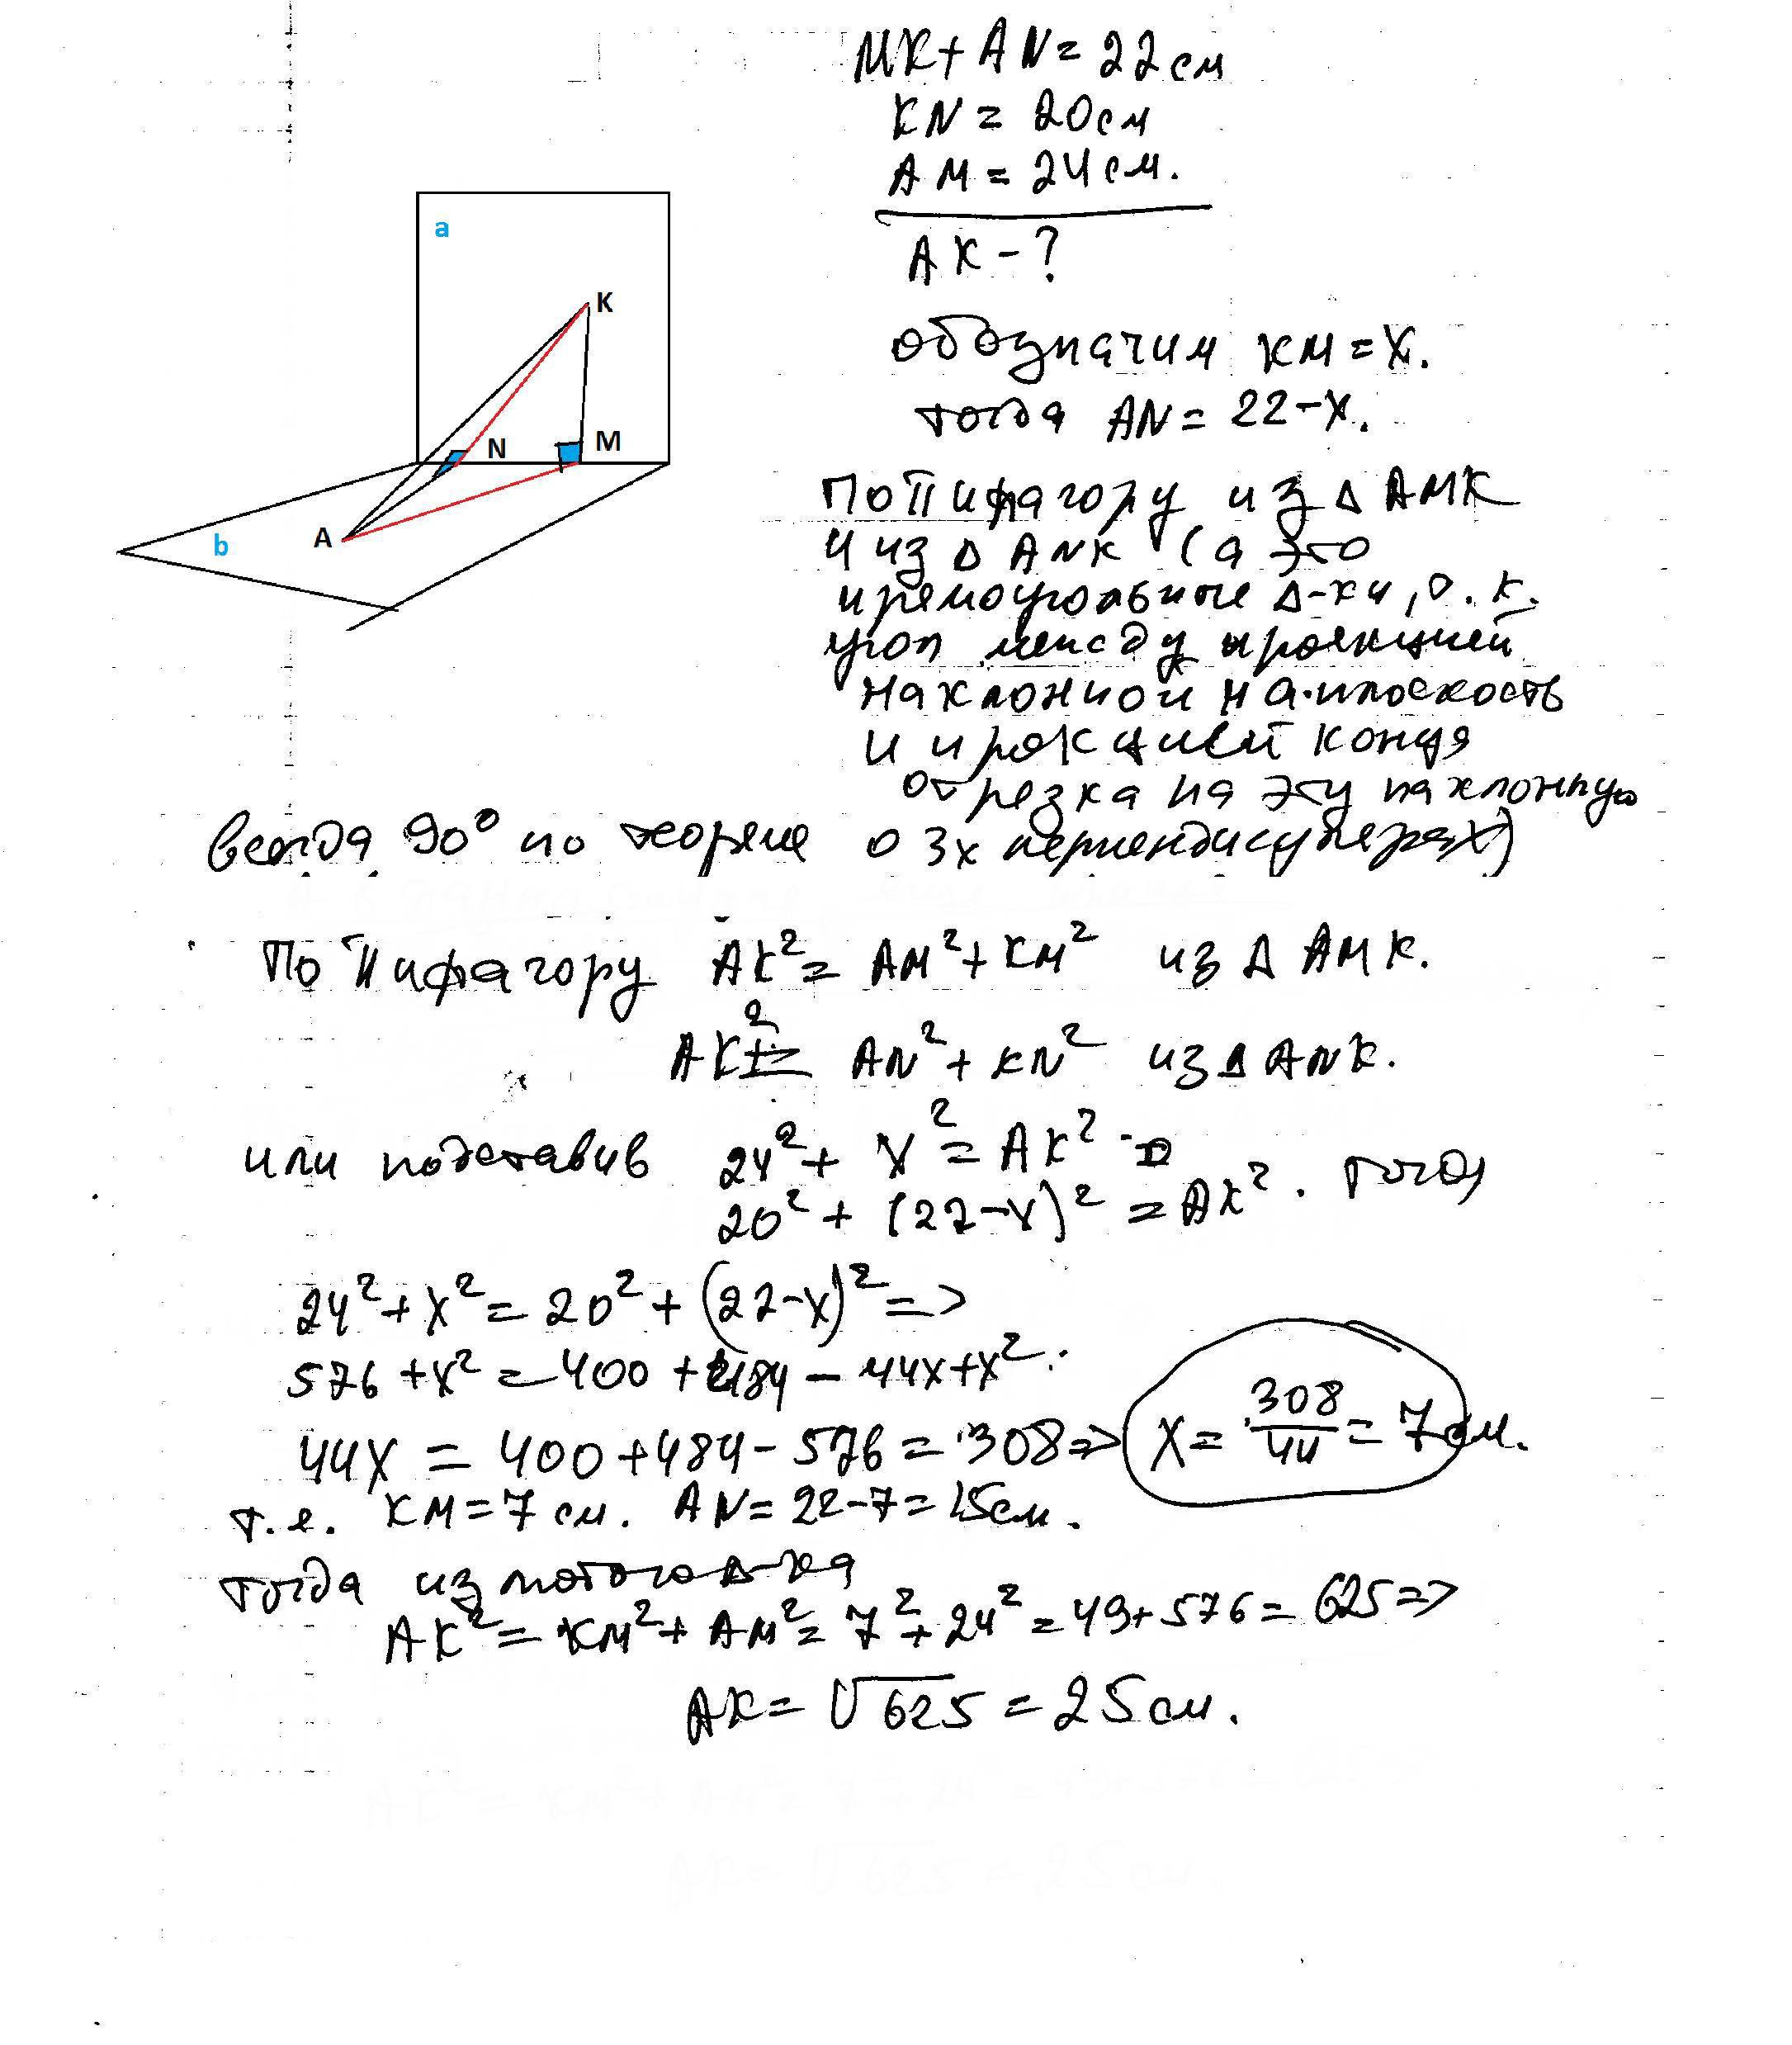 МК + AN = 22 см
KN = 20 см
AM = 24 см.
AK - ?
a
K
N
M
b
A
обозначим КМ = X.
тогда AN = 22 - X.
По Пифагору из Δ AMK
и из Δ ANK (а это
прямоугольные Δ-ки, т.к.
угол между проекцией
наклонной на плоскость
и проекцией конца
отрезка на эту наклонную
всегда 90° по теореме о 3х перпендикулярах)
По Пифагору AK² = AM² + KM² из Δ AMK.
AK² = AN² + KN² из Δ ANK.
или подставив 24² + X² = AK²
20² + (22-X)² = AK². тогда
24² + X² = 20² + (22-X)² =>
576 + X² = 400 + 484 - 44X + X².
44X = 400 + 484 - 576 = 308 => X = 308/44 = 7 см.
т.е. KM = 7 см. AN = 22-7 = 15 см.
тогда из любого Δ-ка
AK² = KM² + AM² = 7² + 24² = 49 + 576 = 625 =>
AK = √625 = 25 см.